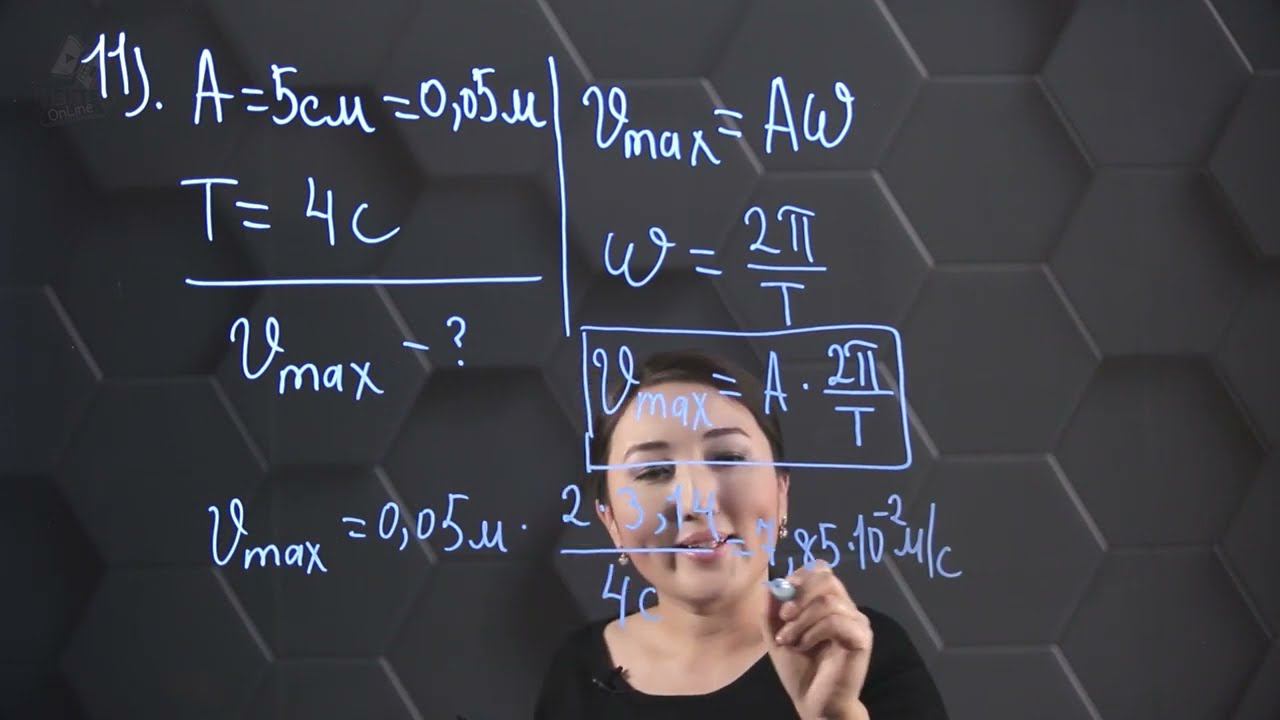 OnLine
11). A = 5см = 0,05м
T = 4с
υmax - ?
υmax = Aω
ω = 2π/T
υmax = A · 2π/T
υmax = 0,05м · 2 · 3,14/4с = 7,85 · 10⁻² м/с